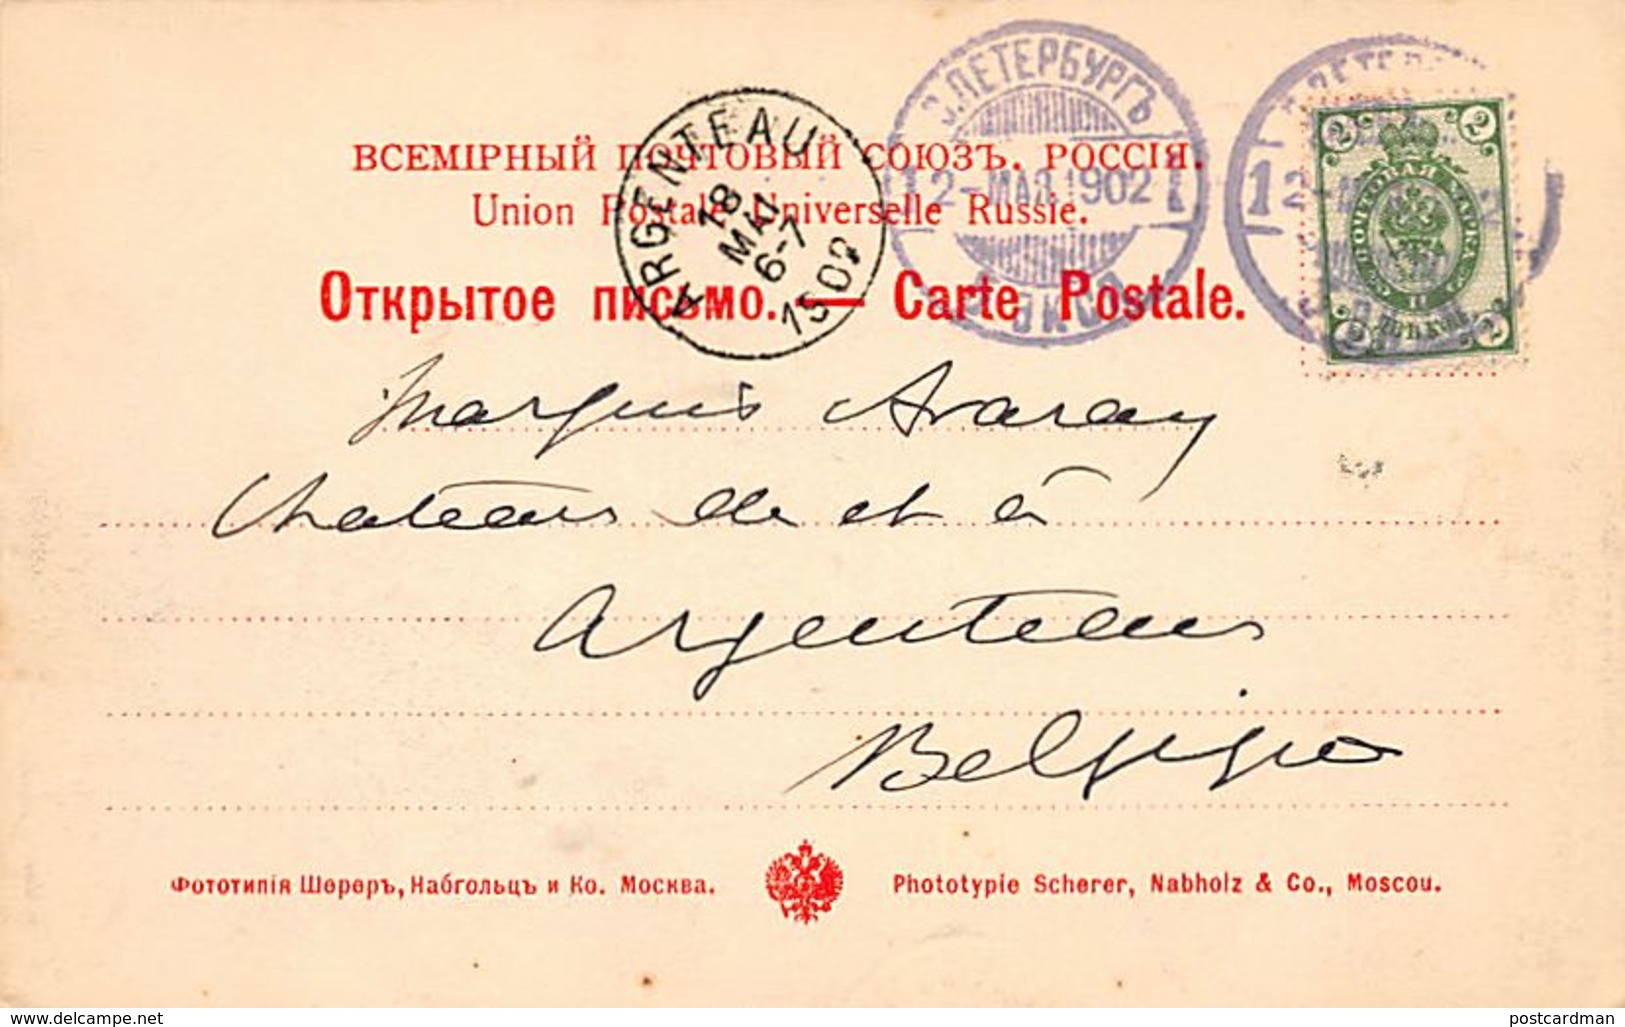 С.ПЕТЕРБУРГЪ
2-МАЯ.1902
1
ARGENTEAU
18
MAI
6-7
1902
2 2
ПОЧТОВАЯ МАРКА
2 2
ВСЕМІРНЫЙ ПОЧТОВЫЙ СОЮЗЪ. РОССІЯ.
Union Postale Universelle Russie.
Открытое письмо. — Carte Postale.
Marquis
Chateau de et à
Argenteau
Belgique
Фототипія Шереръ, Набгольцъ и Ко. Москва.
Phototypie Scherer, Nabholz & Co., Moscou.
www.delcampe.net
postcardman